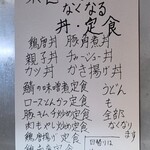 なくなる
丼・定食
鶏唐丼 豚角煮丼
親子丼 チャーシュー丼
カツ丼 かき揚げ丼
鯖の味噌煮定食
ロースとんかつ定食
豚キムチ炒め定食
肉もやし炒め定食
鶏唐揚げ定食
うどん
も
全部
なくなり
ます